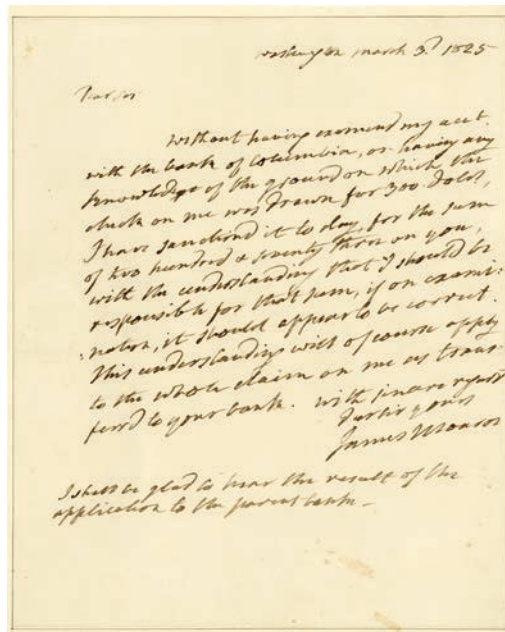 Washington March 3d. 1825
Dear Sir
Without having examind my acct.
with the bank of Columbia, or having any
knowledge of the ground on which the
check on me was drawn for 300. dolrs,
I have sanctiond it to day, for the sum
of two hundred & seventy three on you,
with the understanding that I should be
responsible for that sum, if on exami-
:nation, it should appear to be correct.
This understanding will of course apply
to the whole claim on me as trans-
ferrd to your bank. With sincere regard
Dear Sir yours
James Monroe
I shall be glad to hear the result of the
application to the parent bank_